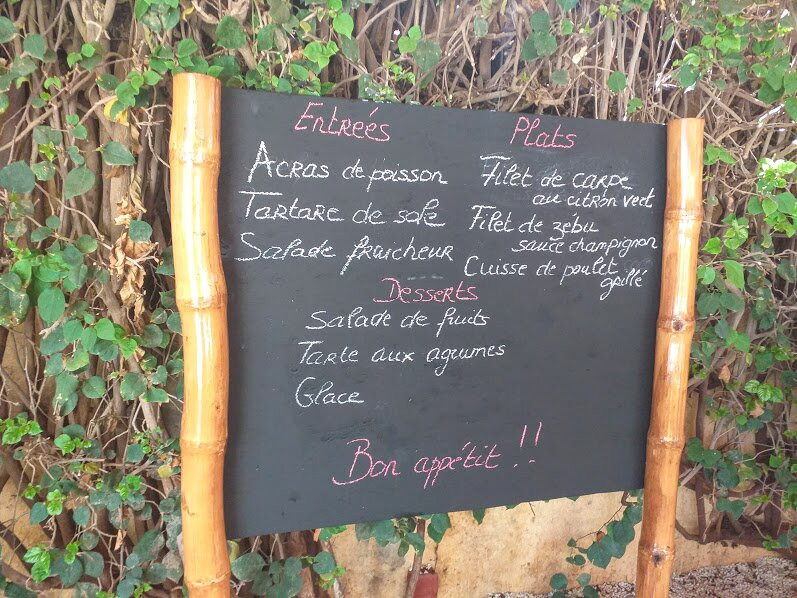 Entrées
Acras de poisson
Tartare de sole
Salade fraicheur
Plats
Filet de carpe
au citron vert
Filet de zébu
sauce champignon
Cuisse de poulet
grillé
Desserts
Salade de fruits
Tarte aux agumes
Glace
Bon appétit !!